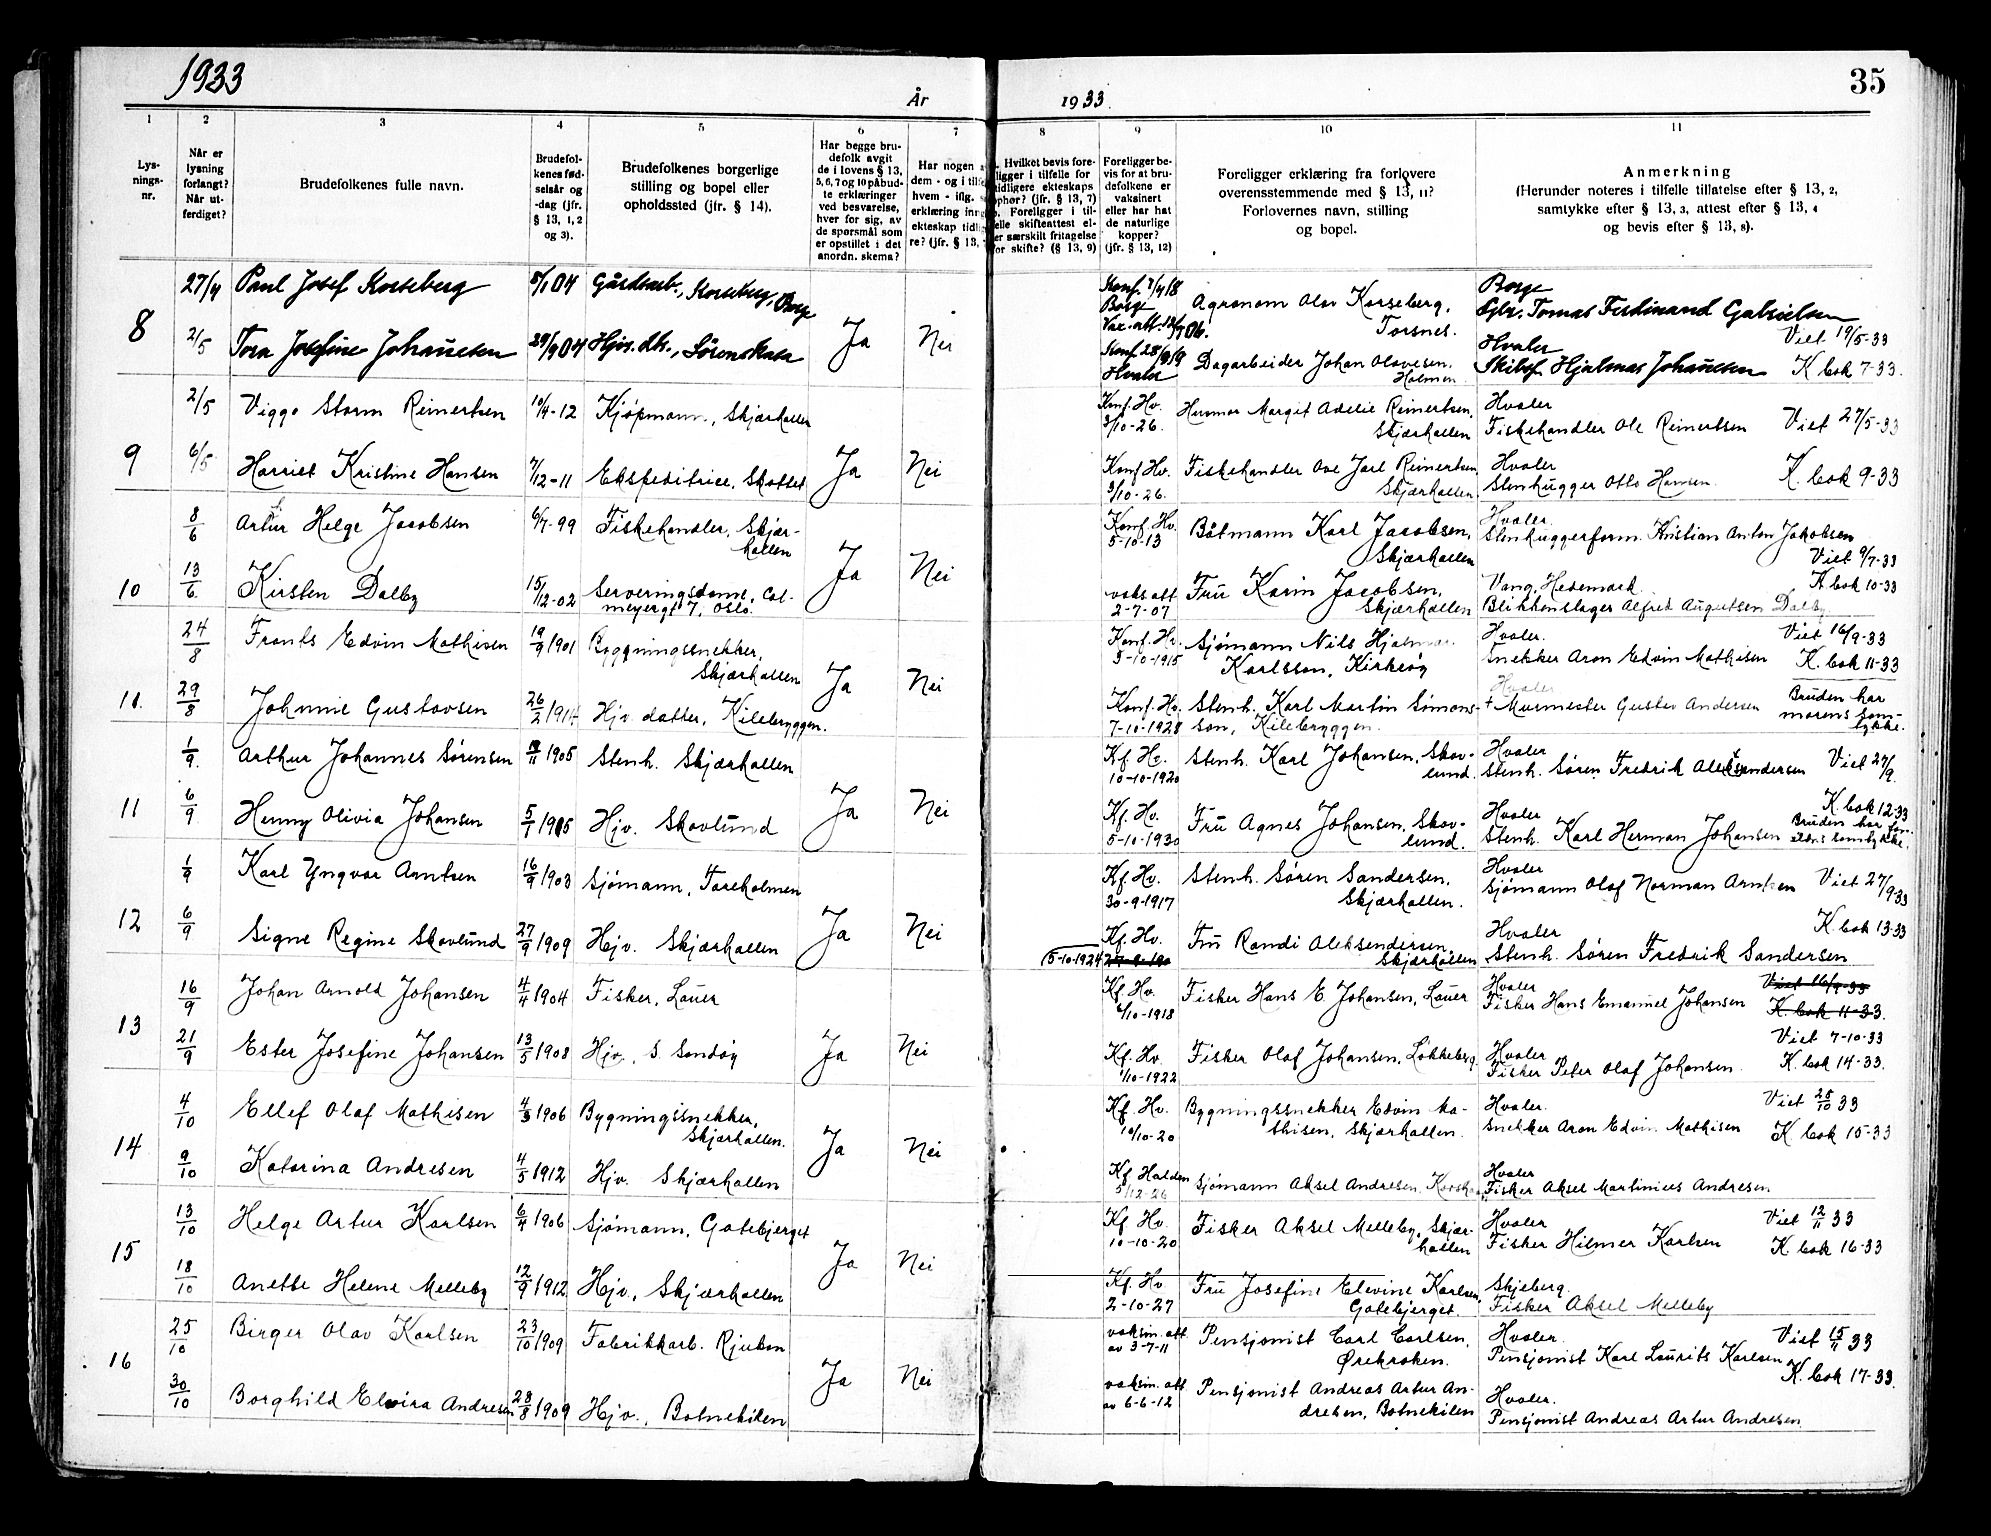 1933
År
1933.
35
1
2
3
4
5
6
7
8
9
10
11
Lys-
nings-
nr.
Når er
lysning
forlangt?
Når ut-
ferdiget?
Brudefolkenes fulle navn.
Brudefol-
kenes fød-
selsår og
-dag (jfr.
§ 13, 1, 2
og 3).
Brudefolkenes borgerlige
stilling og bopel eller
opholdssted (jfr. § 14).
Har begge bru-
defolk avgit
de i lovens § 13,
5, 6, 7 og 10 påbud-
te erklæringer
ved besvarelse,
hver for sig, av
de spørsmål som
er opstillet i det
anordn. skema?
Har nogen
dem - og i tilf
hvem - ifig.
erklæring inn
ekteskap tidl
re? (jfr. § 13,
Hvilket bevis fore-
ligger i tilfelle for
tidligere ekteskaps
ophør? (jfr. § 13, 7)
Foreligger i til-
felle skifteattest el-
er særskilt fritagelse
for skifte? (§ 13, 9)
Foreligger be-
vis for at bru-
defolkene er
vaksinert
eller har hat
de naturlige
kopper?
(jfr. § 13, 12)
Foreligger erklæring fra forlovere
overensstemmende med § 13, 11?
Forlovernes navn, stilling
og bopel.
Anmerkning
(Herunder noteres i tilfelle tillatelse efter § 13, 2,
samtykke efter § 13, 3, attest efter § 13, 4
og bevis efter § 13, 8).
8
27/4 Paul Josef Korseberg 5/1 04 Gårdsarb., Korseberg, Borge
Konf. 7/4 18 Borge Vax. att. 12/7 06. Agronom Olav Korseberg, Torsnes.
Borge Gbr. Tomas Ferdinand Gabrielsen Viet 19/5-33
2/5 Tora Josefine Johannesen 29/9 04 Hjv. dtr., Sørenskasa Ja Nei
Konf. 28/9 19 Hvaler Dagarbeider Johan Olavesen, Holmen
Hvaler Skibsf. Hjalmar Johannesen K bok 7-33.
9
2/5 Viggo Storm Reinertsen 10/4-12 Kjøpmann, Skjærhallen
Konf. Hv. 3/10-26. Husmor Margit Adelie Reinertsen, Skjærhallen
Hvaler Fiskehandler Ole Reinertsen Viet 27/5-33
6/5 Harriet Kristine Hansen 7/12-11 Ekspeditrice, Skottet Ja Nei
Konf Hv. 3/10-26. Fiskehandler Ove Jarl Reinertsen, Skjærhallen
Hvaler Stenhugger Otto Hansen. K. bok 9-33
10
8/6 Artur Helge Jacobsen 6/7-99 Fiskehandler, Skjær-
hallen
Konf. Hv. 5-10-13 Båtmann Karl Jacobsen, Skjærhallen
Hvaler. Stenhuggerform. Kristian Anton Jakobsen Viet 9/7-33
13/6 Kirsten Dalby 15/12-02 Serveringsdame, Col-
meyergt 7, Oslo. Ja Nei
vaks att 2-7-07 Fru Karin Jacobsen, Skjærhallen
Vang, Hedemark. Blikkenslager Alfred Augustsen Dalby. K bok 10-33
11.
24/8 Frants Edvin Mathisen 19/9 1901 Byggningssnekker, Skjærhallen
Konf. Hv. 3-10-1915 Sjømann Nils Hjalmar Karlsson, Kirkeøy
Hvaler. Snekker Aron Edvin Mathisen Viet 16/9-33 K. bok 11-33
29/8 Johnnie Gustavsen 26/2 1914 Hjv. datter, Kilebryggen. Ja Nei
Konf. Hv. 7-10-1928 Stenh. Karl Martin Simons-
son, Kilebryggen.
Hvaler + Murmester Gustav Andersen Bruden har
morens sam-
tykke.
11
1/9. Arthur Johannes Sørensen 1905 Stenh. Skjærhallen
Kf. Hv. 10-10-1920 Stenh. Karl Johansen, Skov-
lund.
Hvaler Stenh. Søren Fredrik Aleksandersen Viet 27/9.
6/9 Henny Olivia Johansen 5/1 1915 Hjv. Skovlund Ja Nei
Kf. Hv. 5-10-1930 Fru Agnes Johansen, Skov-
lund.
Hvaler Stenh. Karl Herman Johansen K. bok 12-33 Bruden har for-
eldres samtykke.
12
1/9 Karl Yngvar Arntsen 16/9 1903 Sjømann, Toreholmen
Kf. Hv. 30-9-1917 Stenh. Søren Sandersen, Skjærhallen.
Hvaler Sjømann Olaf Norman Arntsen Viet 27/9-33
6/9 Signe Regine Skovlund 27/9 1909 Hjv. Skjærhallen Ja Nei
Kf. Hv. 5-10-1924 Fru Randi Aleksendersen, Skjærhallen
Hvaler Stenh. Søren Fredrik Sandersen K. bok 13-33
13
16/9 Johan Arnold Johansen 4/4 1904 Fisker, Lauer
Kf. Hv. 6/10-1918 Fisker Hans E. Johansen, Lauer
Hvaler Fisker Hans Emanuel Johansen Viet 16/9-33 K. bok 11-33.
21/9 Ester Josefine Johansen 13/5 1908 Hjv., S. Sandøy Ja Nei
Kf. Hv. 1/10-1922 Fisker Olaf Johansen, Løkkeberg.
Hvaler Fisker Peter Olaf Johansen. Viet 7-10-33 K. bok 14-33.
14
4/10 Ellef Olaf Mathisen 4/3 1906 Bygningssnekker, Skjærhallen.
Kf. Hv. 10/10-20 Bygningssnekker Edvin Ma-
thisen, Skjærhallen.
Hvaler. Snekker Aron Edvin Mathisen Viet 28/10 33 K. bok 15-33
9/10 Katarina Andresen 4/5 1912 Hjv. Skjærhallen Ja Nei
Kf. Halden 5/12-26 Sjømann Aksel Andresen,
Hvaler Fisker Aksel Martinius Andresen
15
13/10 Helge Artur Karlsen 6/4 1906 Sjømann, Gotebjerget
Kf. Hv. 10-10-20 Fisker Aksel Melleby, Skjær-
hallen
Hvaler Fisker Hilmer Karlsen Viet 12/11 33 K. bok 16-33
18/10 Anette Helene Melleby 12/9 1912 Hjv., Skjærhallen Ja Nei
Kf. Hv. 2-10-27 Fru Josefine Elevine Karlsen, Gotebjerget.
Skjeberg. Fisker Aksel Melleby
16
25/10 Birger Olav Karlsen 23/10 1909 Fabrikkarb. Rjukan
vaksin. att av 3-7-11 Pensjonist Carl Carlsen, Ørekroken.
Hvaler. Pensjonist Karl Laurits Karlsen Viet 15/11 33
30/10 Borghild Elvira Andresen 28/8 1909 Hjv., Botnekilen Ja Nei
vaksin. att av 6-6-12 Pensjonist Andreas Artur An-
dresen, Botnekilen
Hvaler. Pensjonist Andreas Artur Andresen. K. bok 17-33.